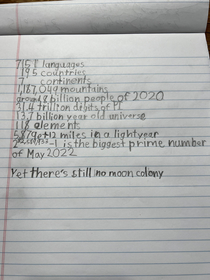 7151 languages
195 countries
7 continents
1,187,049 mountains
around 8 billion people of 2020
31.4 trillion digits of PI
13.7 billion year old universe
118 element
5.879e+12 miles in a lightyear
-1 is the biggest prime number
of May 2022
Yet there's still no moon colony